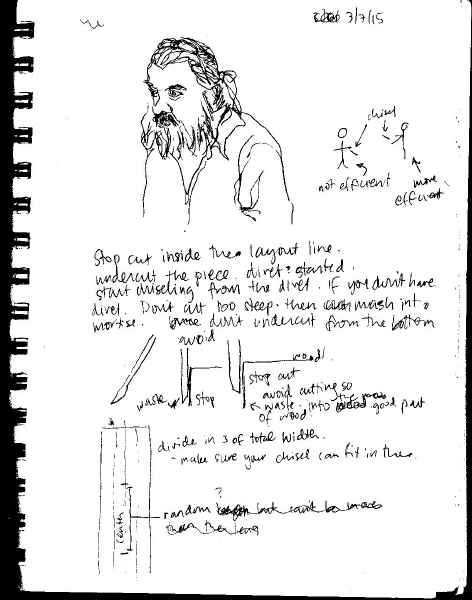 3/7/15
chisel
not efficient
more efficient
Stop cut inside the layout line.
undercut the piece. divet? started.
start chiseling from the divet. if you don't have
divet. Don't cut too steep. then mash into
mortise. don't undercut from the bottom
avoid
wood
stop cut
waste
stop
avoid cutting so
waste into good part
of wood.
divide in 3 of total width.
- make sure your chisel can fit in there.
?
random but can't be
center